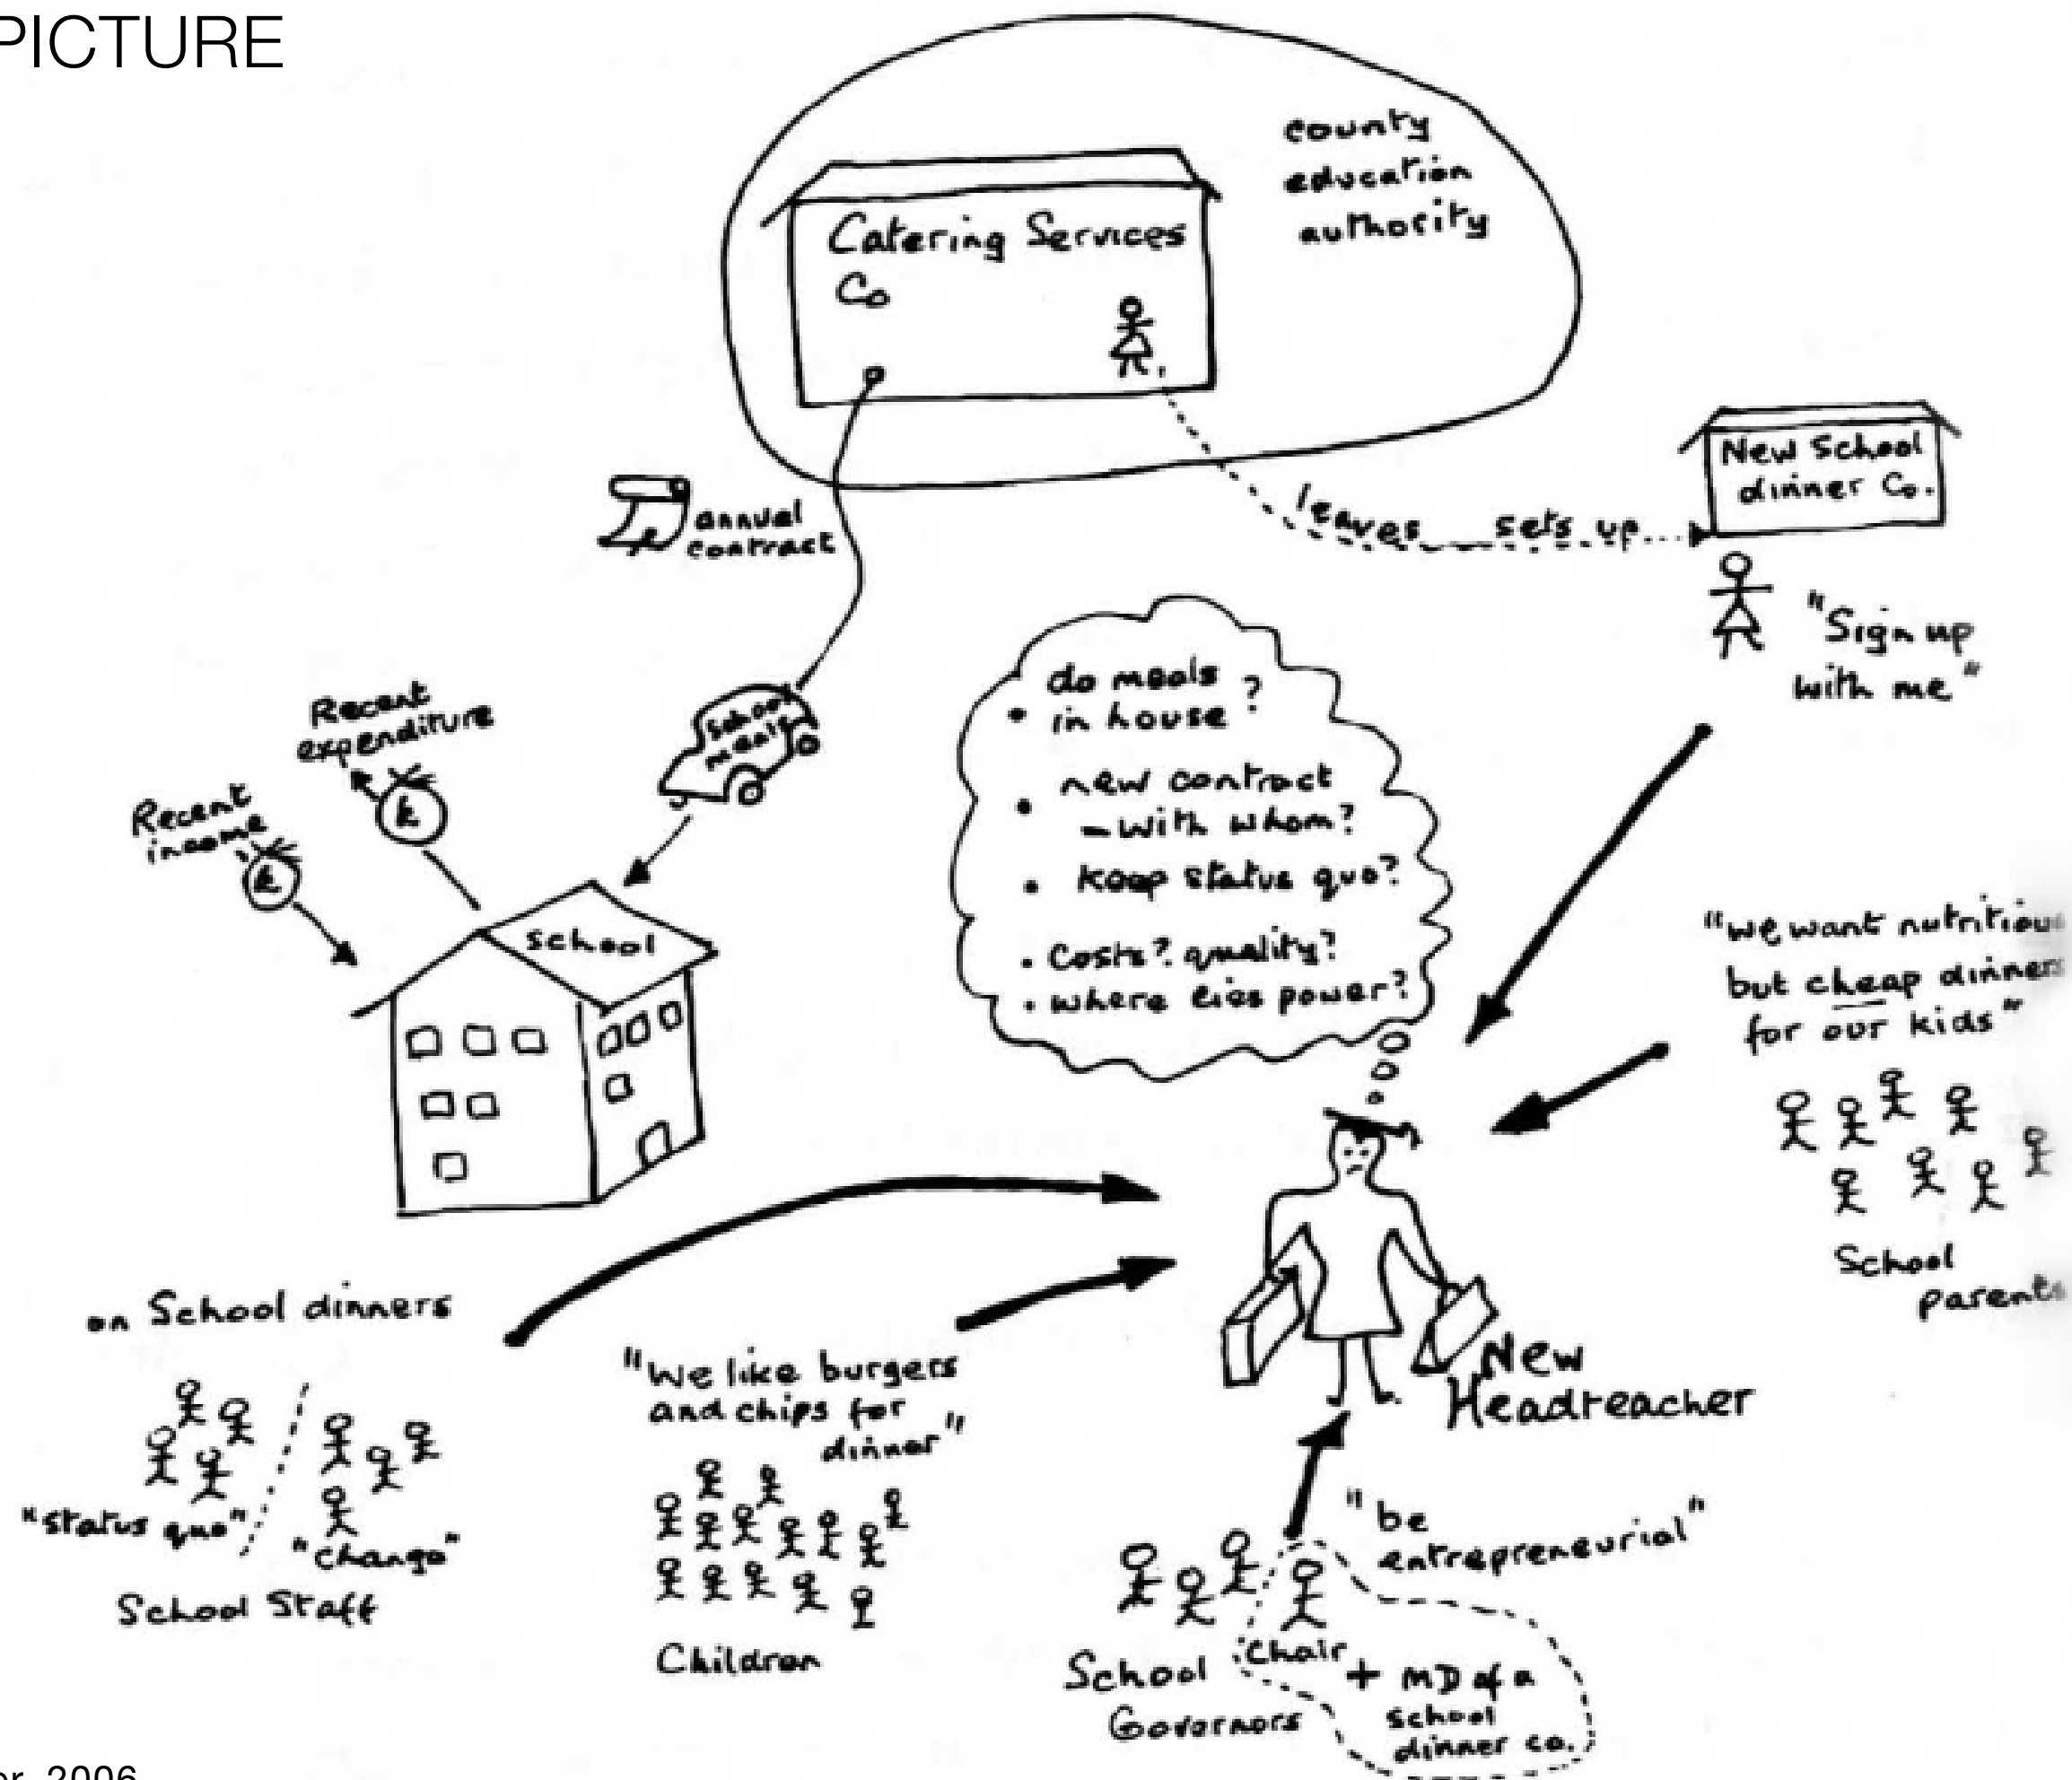 PICTURE
county
education
authority
Catering Services
Co
annual
contract
leaves sets up
New School
dinner Co.
"Sign up
with me"
School
meals
Recent
expenditure
£
Recent
income
£
School
• do meals
in house ?
• new contract
– with whom?
• keep status quo?
• Costs? quality?
• where lies power?
"we want nutritious
but cheap dinners
for our kids"
School
parents
New
Headteacher
on School dinners
"status quo"
"change"
School Staff
"We like burgers
and chips for
dinner"
Children
"be
entrepreneurial"
School
Governors
Chair
+ MD of a
school
dinner co.
2006